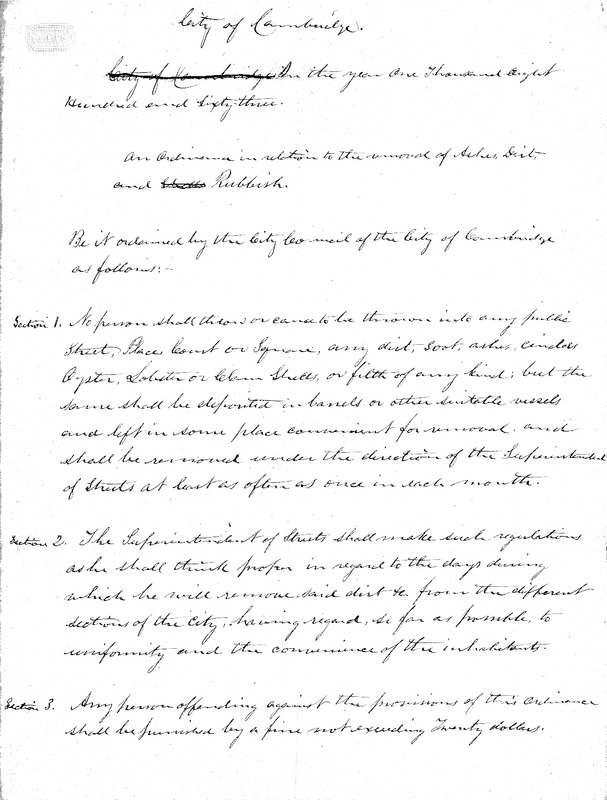 City of Cambridge.
City of Cambridge In the year One Thousand Eight
Hundred and Sixty three.
An Ordinance in relation to the removal of Ashes, Dirt,
and Shells Rubbish.
Be it ordained by the City Council of the City of Cambridge
as follows:-
Section 1. No person shall throw or cause to be thrown into any public
Street, Place, Court or Square, any dirt, Soot, ashes, cinders
Oyster, Lobster or Clam Shells, or filth of any kind; but the
same shall be deposited in barrels or other suitable vessels
and left in some place convenient for removal, and
shall be removed under the direction of the Superintendent
of Streets at least as often as once in each month.
Section 2. The Superintendent of Streets shall make such regulations
as he shall think proper in regard to the days during
which he will remove said dirt &c from the different
sections of the City, having regard, so far as possible, to
uniformity and the convenience of the inhabitants.
Section 3. Any person offending against the provisions of this Ordinance
shall be punished by a fine not exceeding Twenty dollars.